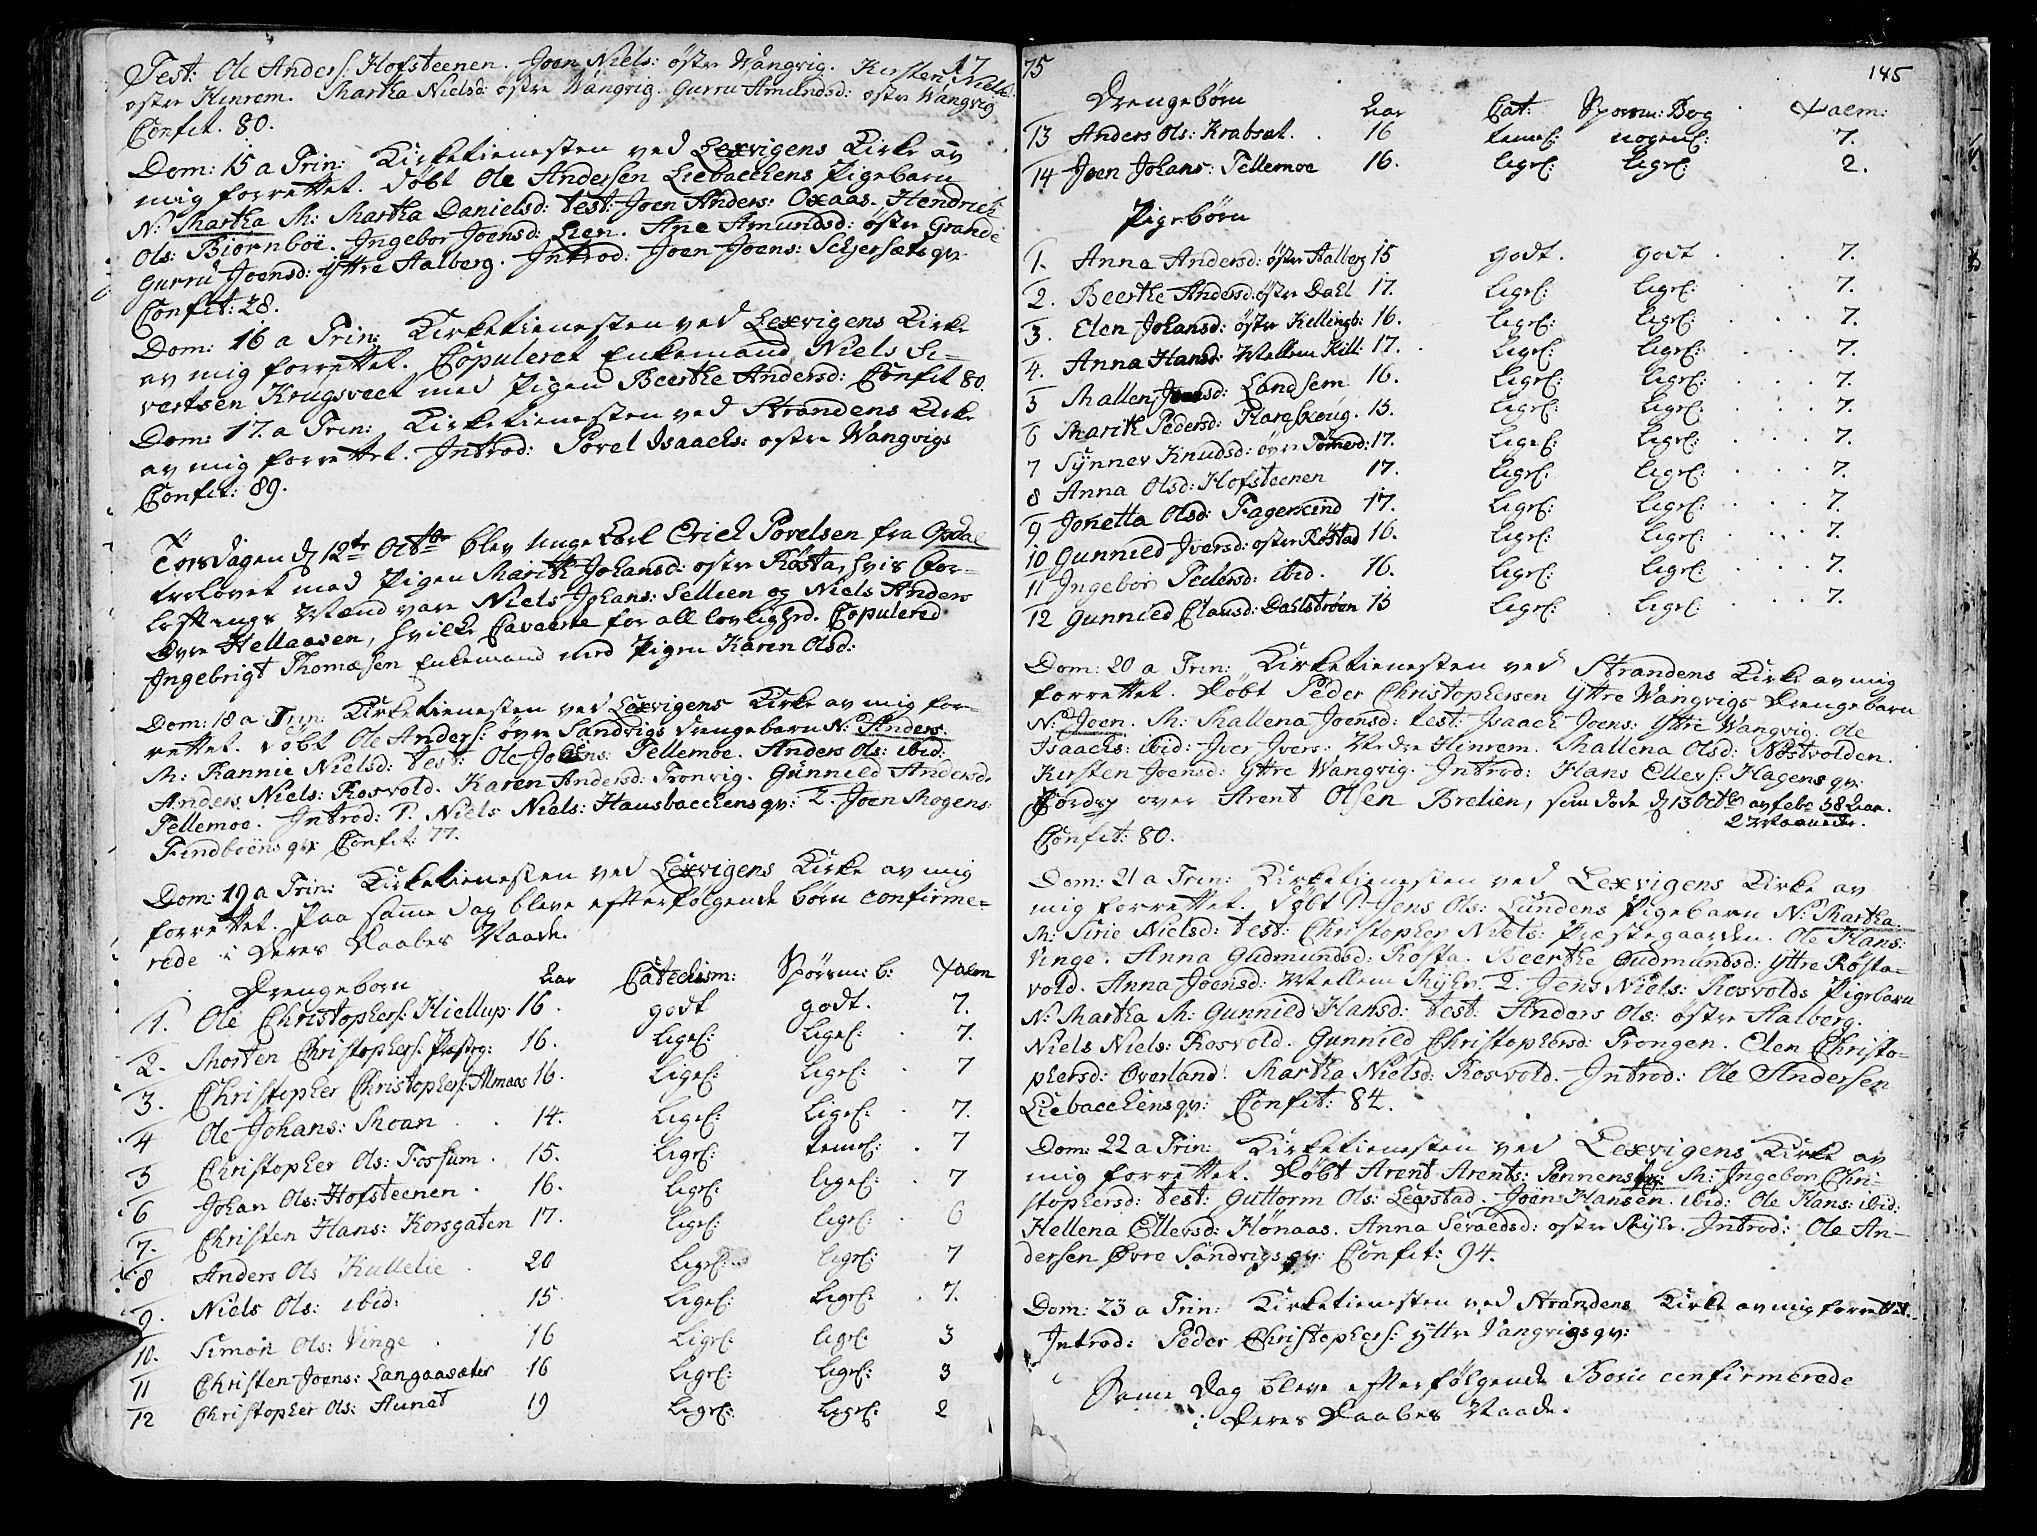 17
Test: Ole Anders: Hofsteenen. Joen Niels: östre Wangvig. Kirsten Nielsd:
östre Hinrem. Martha Nielsd: östre Wangvig. Gurru Amundsd: östre Wangvig
Confit. 80.
Dom: 15 a Trin: Kirketienesten ved Lexvigens Kirke av
mig forrettet. Döbt Ole Andersen Liebacchens Pigebarn
N: Martha M: Martha Danielsd: test: Joen Anders: Oxaas. Hendrich
Ols: Biörnböe. Ingebor Joensd: Lien. Ane Amundsd: östre Grande
Gurru Joensd: yttre Aalberg. Introd: Joen Joens: qv:
Confit: 28.
Dom: 16 a Trin: Kirketienesten ved Lexvigens Kirke
av mig forrettet. Copuleret Enkemand Niels Si-
vertsen Krugsveet med Pigen Beerthe Andersd: Confit 80.
Dom: 17. a Trin: Kirketienesten ved Strandens Kirke
av mig forrettet. Introd: Povel Isaachs: östre Wangvigs
Confit: 89.
Torsdagen d 12te Octbr blev unge Karl Erich Povelsen fra Opdal
trolovet med Pigen Marith Johansd: östre Rösta, hvis For-
loftnings Mænd vare Niels Johans: Sellien og Niels Anders
Övre Hellaasen, hvilke Caverte for all lovlighed. Copulered
Ingebrigt Thomæsen Enkemand med Pigen Karen Olsd:
Dom: 18 a Trin: Kirketienesten ved Lexvigens Kirke av mig for-
rettet. Döbt Ole Anders: övre Sandvigs Drengebarn N: Anders.
M: Rannie Nielsd: test: Ole Johans: Tellemoe. Anders Ols: ibid:
Anders Niels: Rosvold. Karen Andersd: Tronvig. Gunnild Andersd:
Tellemoe. Introd: 1. Niels Niels: Hausbacchens qv: 2. Joen Mogens:
Findböens qv: Confit: 77.
Dom: 19 a Trin: Kirketienesten ved Lexvigens Kirke av mig
forrettet. Paa same Dag bleve efterfölgende börn confirme-
rede i Deres Daabes Naade.
Drengeborn Aar Catechism: Spörsm: b: Psalm
1. Ole Christophers: Hiellup 16. godt godt. 7.
2. Morten Christophers: Præsteg: 16. ligel: ligel: 7.
3. Christopher Christophers: Almaas 16. ligel: ligel: 7
4 Ole Johans: Moan 14. ligel: ligel: 7.
5 Christopher Ols: Fossum 15. ligel: temel: 7
6 Johan Ols: Hofsteenen 16. ligel: ligel: 7
7. Christen Hans: Korsgaten 17. ligel: ligel: 6
8 Anders Ols Kullelie 20 ligel: ligel: 7
9. Niels Ols: ibid: 15. ligel: ligel: 7.
10. Simon Ols: Vinge 16 ligel: ligel: 3
11 Christen Joens: Langaasæter 16 ligel: ligel: 3
12 Christopher Ols: Aunet 19 ligel: ligel: 2
75
145
Drengebörn Aar Cat: Spörsm: Bog Psalm:
13 Anders Ols: Krabsæt. 16 temel: nogenl: 7.
14 Joen Johans: Tellemoe 16. ligel: ligel: 2.
Pigebörn
1. Anna Andersd: östre Aalberg 15 godt. godt 7.
2. Beerthe Andersd: östre Dahl 17. ligel: ligel: 7.
3. Elen Johansd: östre Kellingb: 16. ligel: ligel: 7.
4. Anna Hansd: Mellem Hill: 17. ligel: ligel: 7.
5 Mallen Joensd: Landsem 16. ligel: ligel: 7.
6 Marith Pedersd: 15. ligel: ligel: 7.
7 Synnev Knudsd: övre 17. ligel: ligel: 7.
8 Anna Olsd: Hofsteenen 17. ligel: ligel: 7.
9 Jonetta Olsd: Fagerlind 17. ligel: ligel: 7.
10 Gunnild Iversd: östre Röstad 16. ligel: ligel: 7.
11 Ingebor Pedersd: ibid. 16. ligel: ligel: 7.
12 Gunnild Clausd: Dahlströen 15 ligel: ligel: 7.
Dom: 20 a Trin: Kirketienesten ved Strandens Kirke av mig
forrettet. Döbt Peder Christophersen yttre Wangvigs Drengebarn
N: Joen. M: Mallena Joensd: test: Isaach Joens: yttre Wangvig. Ole
Isaachs: ibid: Iver Ivers: Nedre Hinrem. Mallena Olsd: Nöstvolden.
Kirsten Joensd: yttre Wangvig. Introd: Hans Ellers: Hagens qv:
over Arent Olsen Brelien, som döde d 13 Octbr 58 Aar.
2 Maaneder.
Confit: 80.
Dom: 21 a Trin: Kirketienesten ved Lexvigens Kirke av
mig forrettet. Döbt 1. Jens Ols: Lundens Pigebarn N: Martha:
M: Sirie Nielsd: test: Christopher Niels: Præstegaarden. Ole Hans:
Vinge. Anna Gudmundsd: Rösta. Beerthe Gudmundsd: yttre Rösta-
vold. Anna Joensd: Mellem Myhr. 2. Jens Niels: Rosvolds Pigebarn
N: Martha M: Gunnild Hansd: test: Anders Ols: östre Aalberg.
Niels Niels: Rosvold. Gunnild Christophersd: Trongen. Elen Christo-
phersd: Overland. Martha Nielsd: Rosvold. Introd: Ole Andersen
Liebacchens qv: Confit: 84.
Dom: 22 a Trin: Kirketienesten ved Lexvigens Kirke av
mig forrettet. Döbt Arent Arents: M: Ingebor Chri-
stophersd: test: Guttorm Ols: Leerstad. Joen Hansen. ibid: Ole Hans: ibid:
Hellena Ellersd: Hönaas. Anna östre Myhr. Introd: Ole An-
dersen Övre Sandvigs qv: Confit: 94.
Dom: 23 a Trin: Kirketienesten ved Strandens Kirke av mig forrettet.
Introd: Peder Christophers: yttre Vangvigs qv:
Same Dag bleve efterfölgende Börn confirmerede
i Deres Daabes Naade.